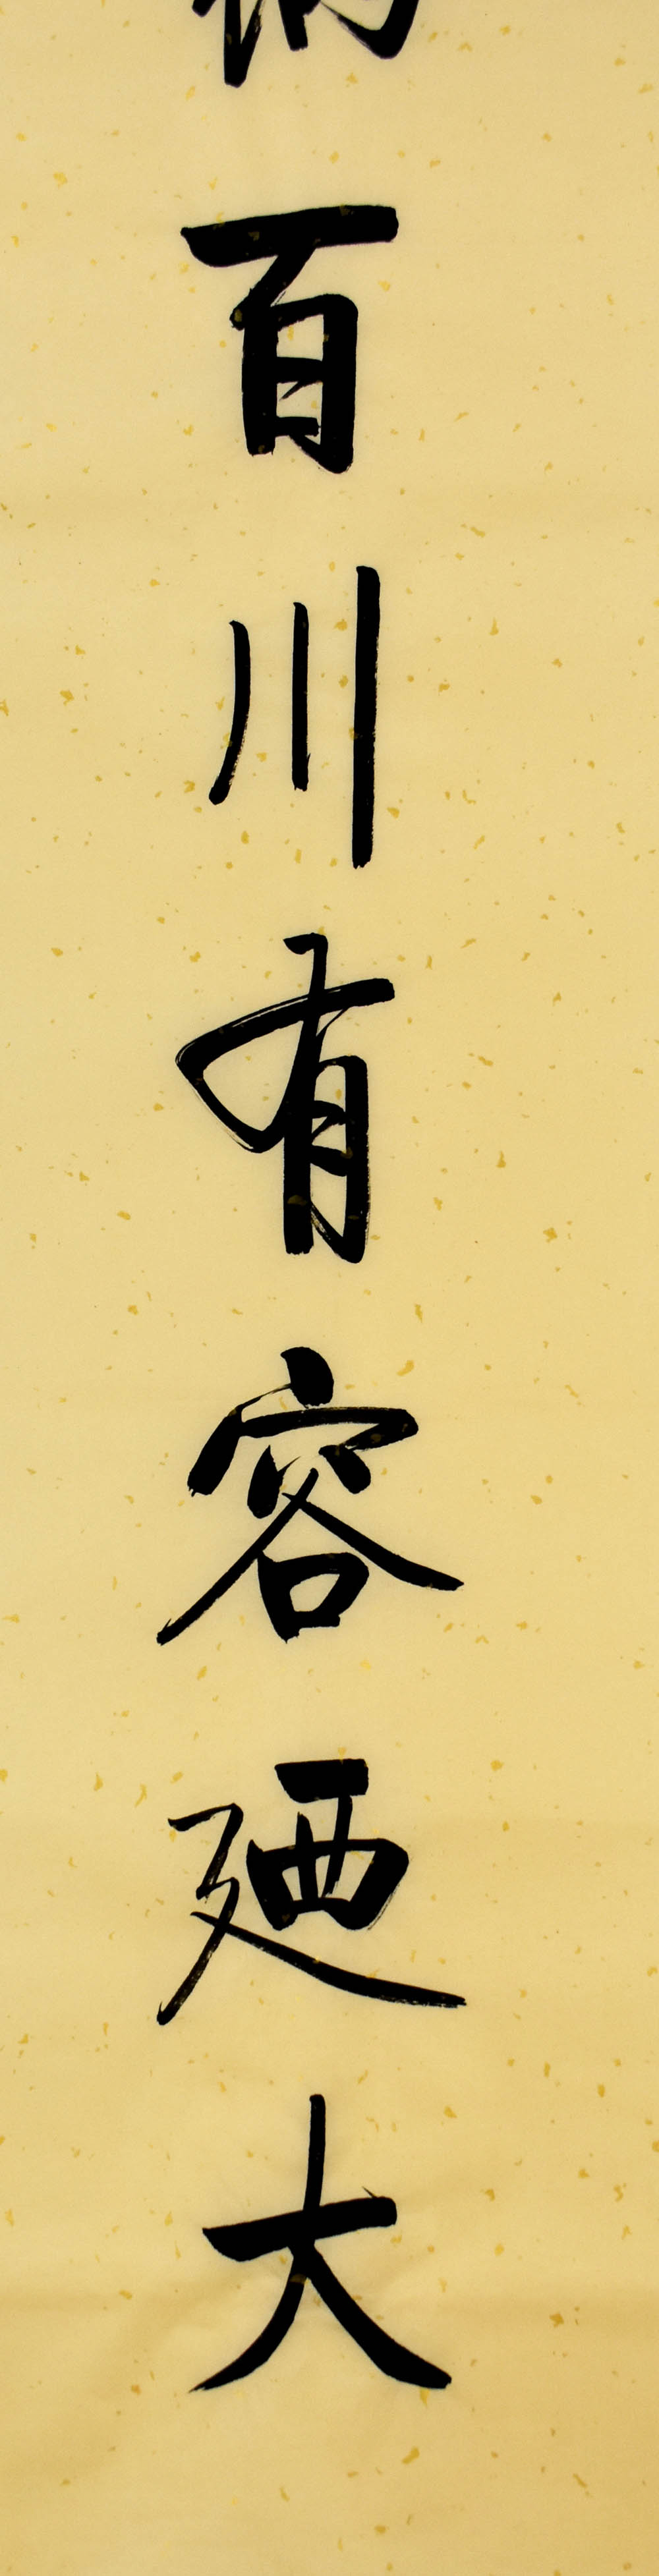 百川有容廼大